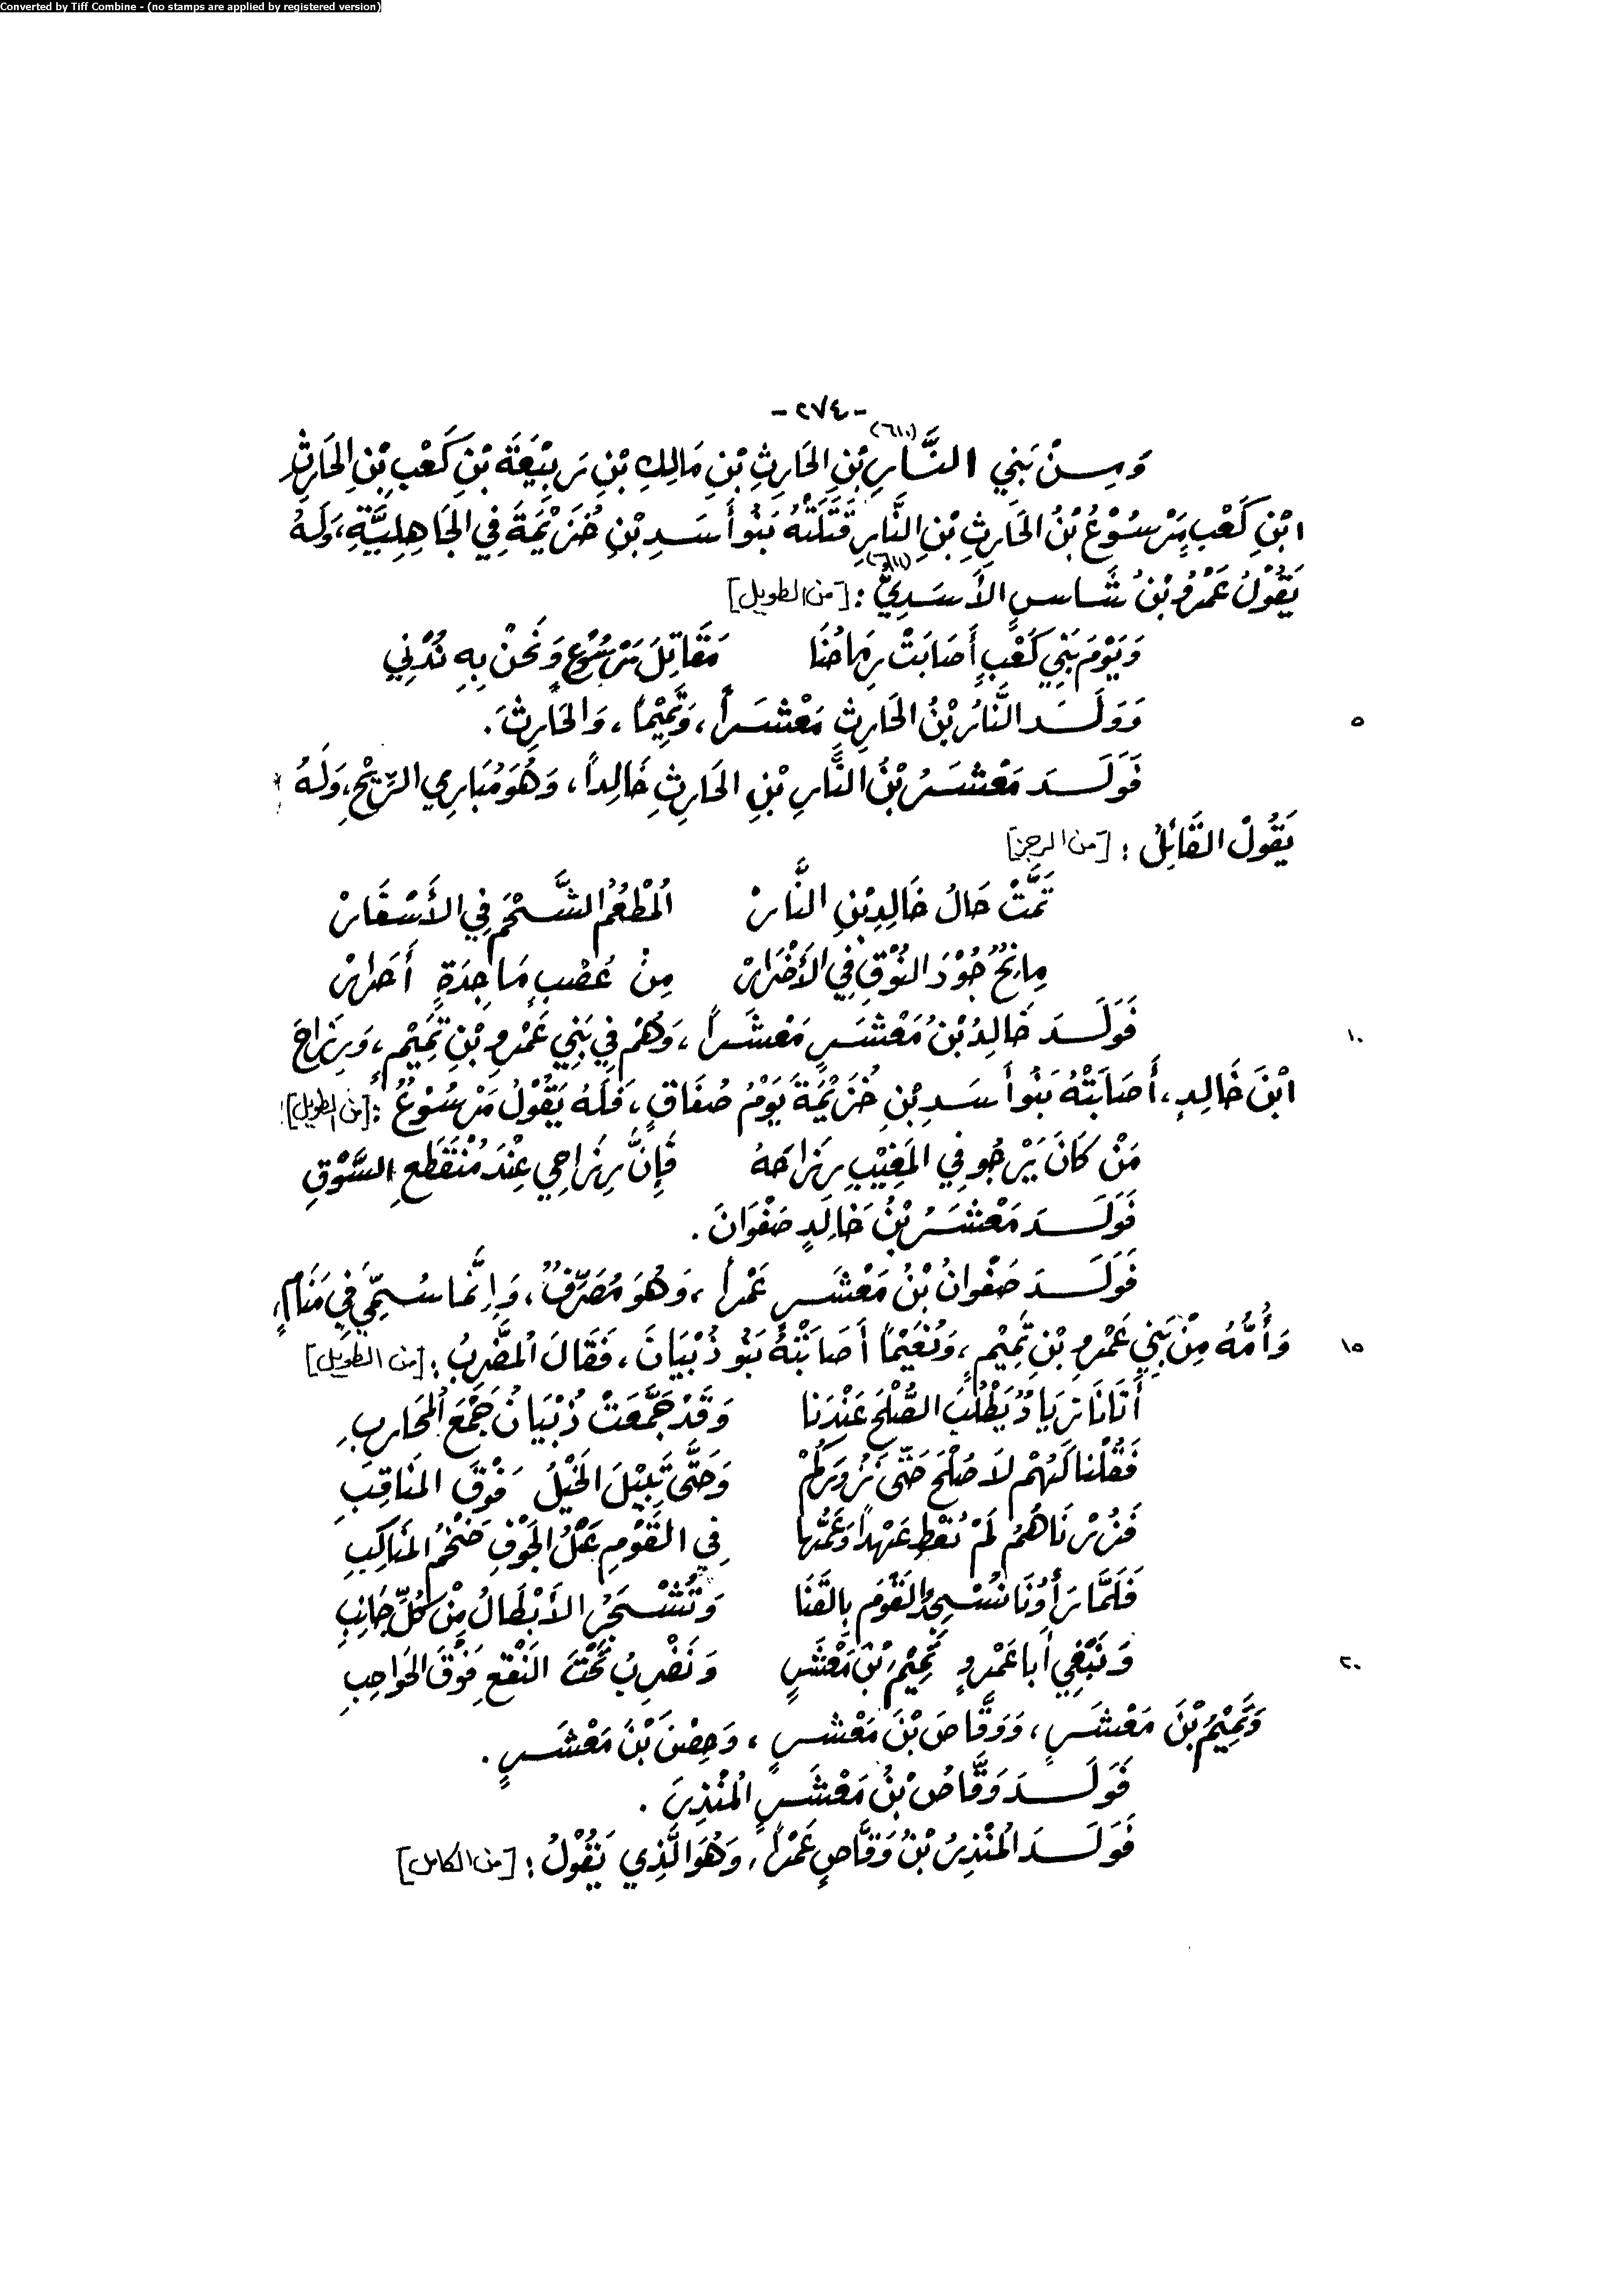 Converted by Tiff Combine - (no stamps are applied by registered version)
- ٢٧٤ -
وَمِنْ بَنِي النَّارِ(٦١٠) بْنِ الحَارِثِ بْنِ مَالِكِ بْنِ رَبِيْعَةَ بْنِ كَعْبِ بْنِ الحَارِثِ
ابْنِ كَعْبٍ يَرْسُوْعُ بْنُ الحَارِثِ بْنِ النَّارِ قَتَلَتْهُ بَنُو أَسَدِ بْنِ خُزَيْمَةَ فِي الجَاهِلِيَّةِ، وَلَهُ
يَقُوْلُ عَمْرُو بْنُ شَاسٍ الأَسَدِيُّ(٦١١) : [من الطويل]
وَيَوْمَ بَنِي كَعْبٍ أَصَابَتْ رِمَاحُنَا مَقَاتِلَ يَرْسُوْعٍ وَنَحْنُ بِهِ نُدْنِي
٥ وَوَلَدَ النَّارُ بْنُ الحَارِثِ مَعْشَراً، وَتَمِيْماً، وَالحَارِثَ.
فَوَلَدَ مَعْشَرُ بْنُ النَّارِ بْنِ الحَارِثِ خَالِداً، وَهُوَ مُبَارِي الرِّيْحِ، وَلَهُ
يَقُوْلُ القَائِلُ : [من الرجز]
تَمَّتْ حَالُ خَالِدِ بْنِ النَّارْ المُطْعِمُ الشَّحْمَ فِي الأَسْفَارْ
مِانِحٌ جُوْدَ النُوْقِ فِي الأَضْرَارْ مِنْ عُصْبٍ مَاجِدَةٍ أَحْرَارْ
١٠ فَوَلَدَ خَالِدُ بْنُ مَعْشَرٍ مَعْشَراً، وَهُمْ فِي بَنِي عَمْرِو بْنِ تَمِيْمٍ، وَرِزَاحَ
ابْنَ خَالِدٍ، أَصَابَتْهُ بَنُو أَسَدِ بْنِ خُزَيْمَةَ يَوْمَ صُفَاقٍ، فَلَهُ يَقُوْلُ يَرْسُوْعُ : [من الطويل]
مَنْ كَانَ يَرْجُو فِي المَغِيْبِ رِزَاحَهُ فَإِنَّ رِزَاحِي عِنْدَ مُنْقَطَعِ السَّوْقِ
فَوَلَدَ مَعْشَرُ بْنُ خَالِدٍ صَفْوَانَ.
فَوَلَدَ صَفْوانُ بْنُ مَعْشَرٍ عَمْراً، وَهُوَ مُصَرِّفٌ، وَإِنَّمَا سُمِّيَ فِي مَنَامٍ،
١٥ وَأُمُّهُ مِنْ بَنِي عَمْرِو بْنِ تَمِيْمٍ، وَنُعَيْماً أَصَابَتْهُ بَنُو ذُبْيَانَ، فَقَالَ المُضَرِّبُ : [من الطويل]
أَتَانَا زِيَادٌ يَطْلُبُ الصُّلْحَ عِنْدَنا وَقَدْ جَمَّعَتْ ذُبْيَانُ جَمْعَ المُحَارِبِ
فَقُلْنا لَهُمْ لاَ صُلْحَ حَتَّى نَزُورَكُمْ وَحَتَّى تَبِيْلَ الخَيْلُ فَوْقَ المَنَاقِبِ
فَزُرْنَاهُمُ لَمْ نُعْطِ عَهْداً وَعَمُّها فِي القَوْمِ عَبْلُ الجَوْفِ ضَخْمُ المَنَاكِبِ
فَلَمَّا رَأَوْنَا نَسْحِجُ القَوْمَ بِالقَنَا وَتُشْجَرُ الأَبْطَالُ مِنْ كُلِّ جَانِبِ
٢٠ وَنَبْغِي أَبا عَمْرٍو تَمِيْمَ بْنَ مَعْشَرٍ وَنَضْرِبُ تَحْتَ النَقْعِ فَوْقَ الحَواجِبِ
وَتَمِيْمَ بْنَ مَعْشَرٍ، وَوَقَّاصَ بْنَ مَعْشَرٍ، وَحِصْنَ بْنَ مَعْشَرٍ.
فَوَلَدَ وَقَّاصُ بْنُ مَعْشَرٍ المُنْذِرَ.
فَوَلَدَ المُنْذِرُ بْنُ وَقَّاصٍ عَمْراً، وَهُوَ الَّذِي يَقُوْلُ : [من الكامل]